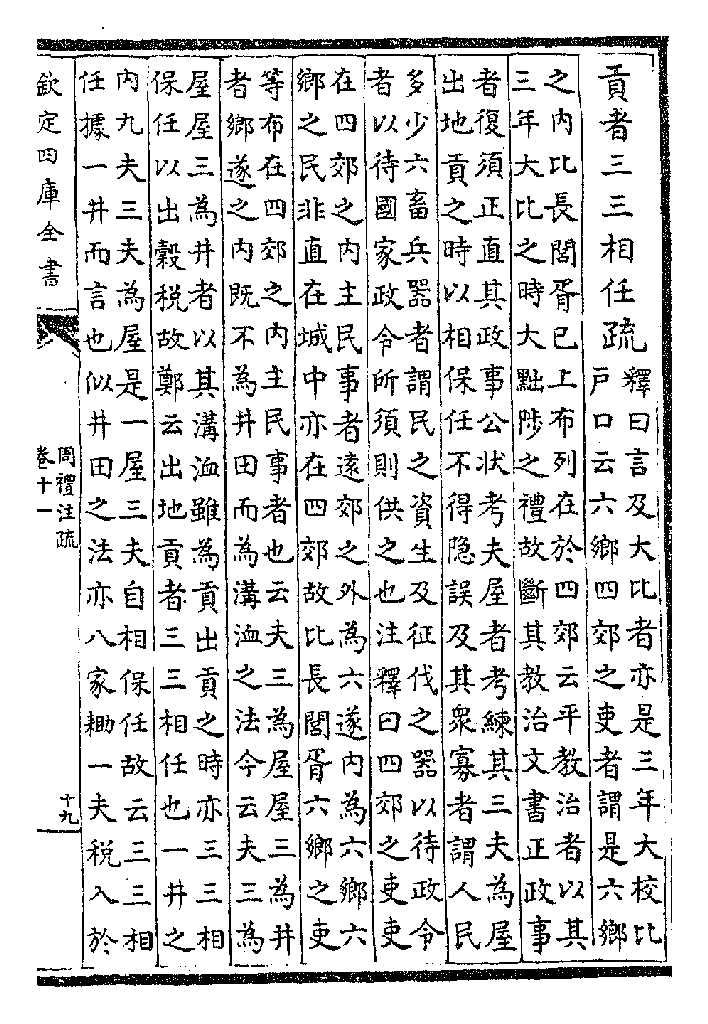 貢者三三相任疏
釋曰言及大比者亦是三年大校比
戶口云六鄉四郊之吏者謂是六鄉
之内比長閭胥已上布列在於四郊云平教治者以其
三年大比之時大黜陟之禮故斷其教治文書正政事
者復須正直其政事公狀考夫屋者考練其三夫為屋
出地貢之時以相保任不得隐誤及其衆寡者謂人民
多少六畜兵器者謂民之資生及征伐之器以待政令
者以待國家政令所須則供之也注釋曰四郊之吏吏
在四郊之内主民事者遠郊之外為六遂内為六鄉六
鄉之民非直在城中亦在四郊故比長閭胥六鄉之吏
等布在四郊之内主民事者也云夫三為屋屋三為井
者鄉遂之内既不為井田而為溝洫之法今云夫三為
屋屋三為井者以其溝洫雖為貢出貢之時亦三三相
保任以出穀税故鄭云出地貢者三三相任也一井之
内九夫三夫為屋是一屋三夫自相保任故云三三相
任據一井而言也似井田之法亦八家耡一夫税入於
欽定四庫全書
周禮注疏
卷十一
十九